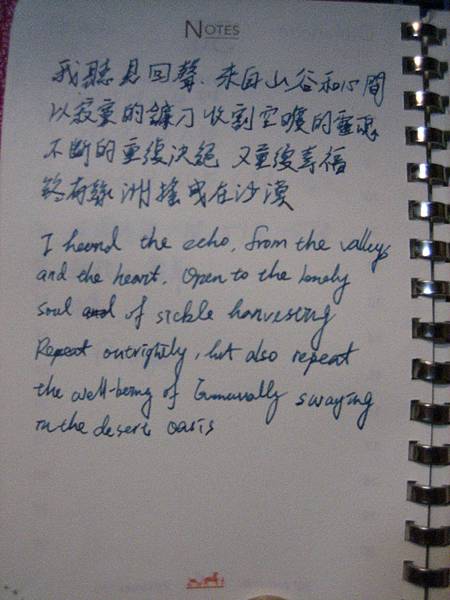 NOTES
我聽見回聲. 來自山谷和心間
以寂寞的鐮刀收割空曠的靈魂
不斷的重復決絕 又重復幸福
終有綠洲搖曳在沙漠
I heard the echo, from the valleys
and the heart. Open to the lonely
soul and of sickle harvesing
Repeat outrightly, but also repeat
the well-being of swaying
in the desert oasis